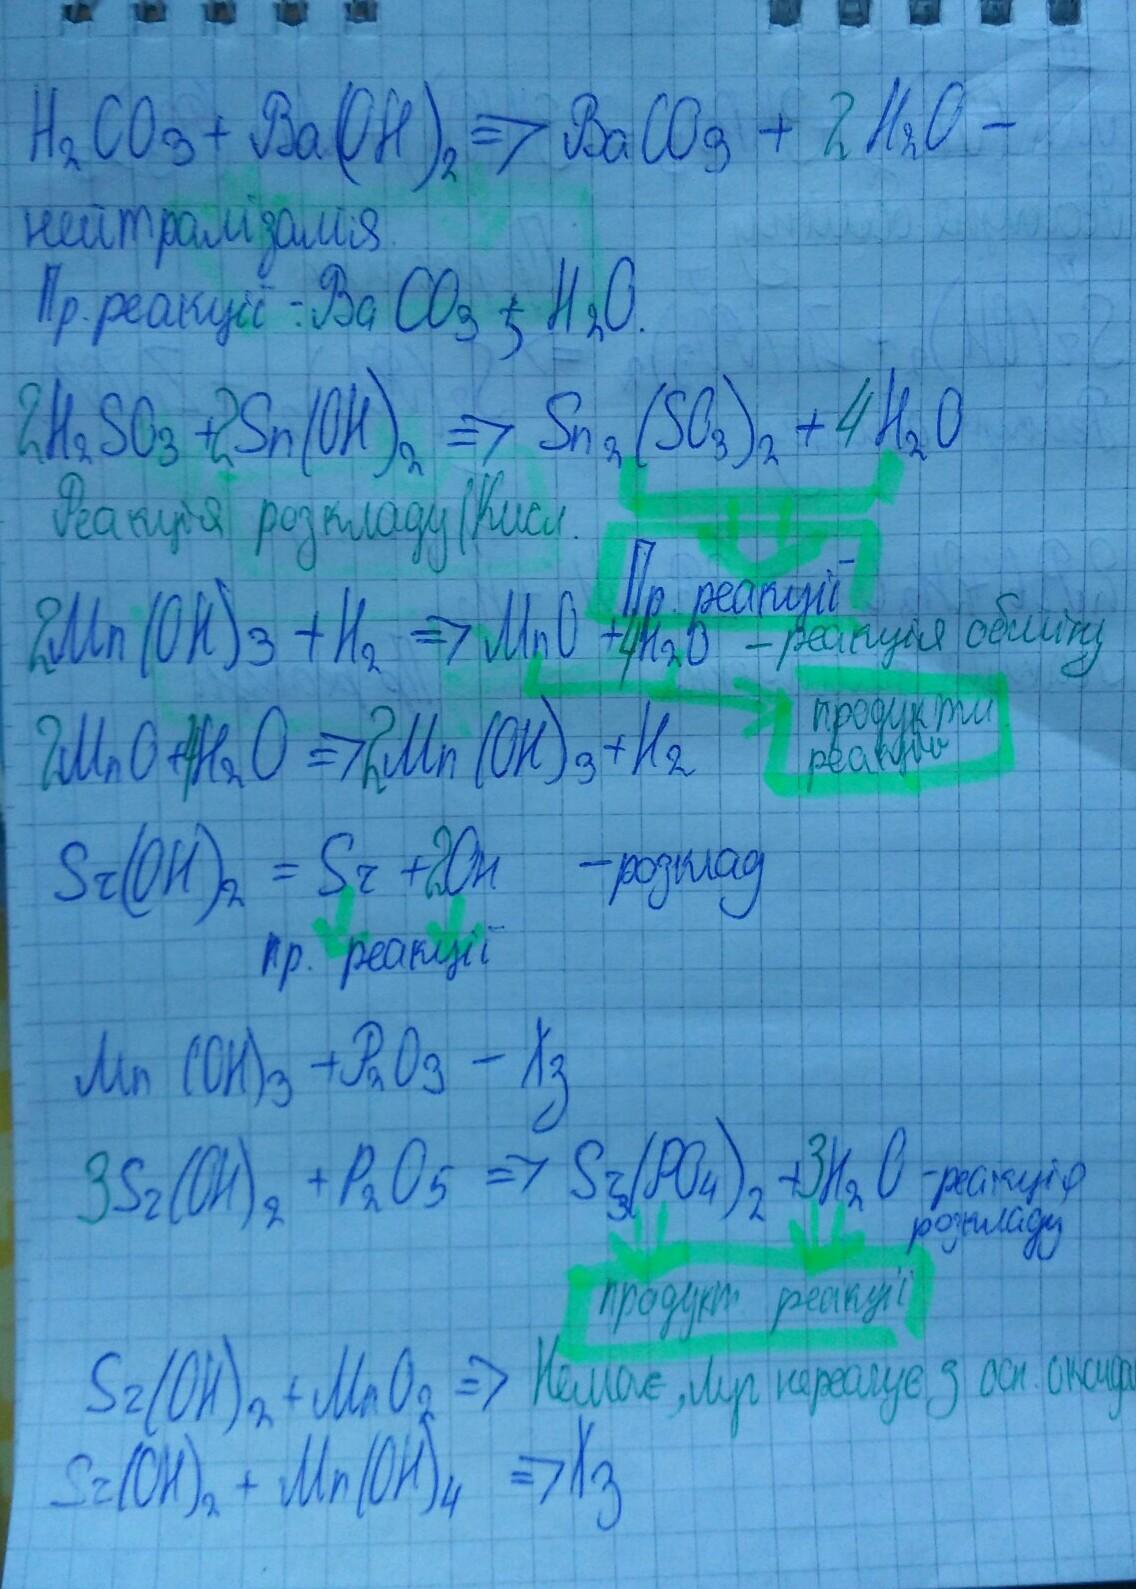 H₂CO₃ + Ba(OH)₂ => BaCO₃ + 2H₂O –
нейтралізамія.
Пр. реакції: BaCO₃ + H₂O.
2H₂SO₃ + 2Sn(OH)₂ => Sn₂(SO₃)₂ + 4H₂O
Реакція розкладу/Кисл.
Пр. реакції
2Mn(OH)₃ + H₂ => MnO + 4H₂O – реакція обміну
продукти
реакції
2MnO + 4H₂O => 2Mn(OH)₃ + H₂
Sr(OH)₂ = Sr + 2OH – розклад
пр. реакції
Mn(OH)₃ + P₂O₃ – Хз
3Sr(OH)₂ + P₂O₅ => Sr₃(PO₄)₂ + 3H₂O – реакція
розкладу
продукт реакції
Sr(OH)₂ + MnO₂ => Немає, Луг не реагує з осн. оксидам
Sr(OH)₂ + Mn(OH)₄ => Хз